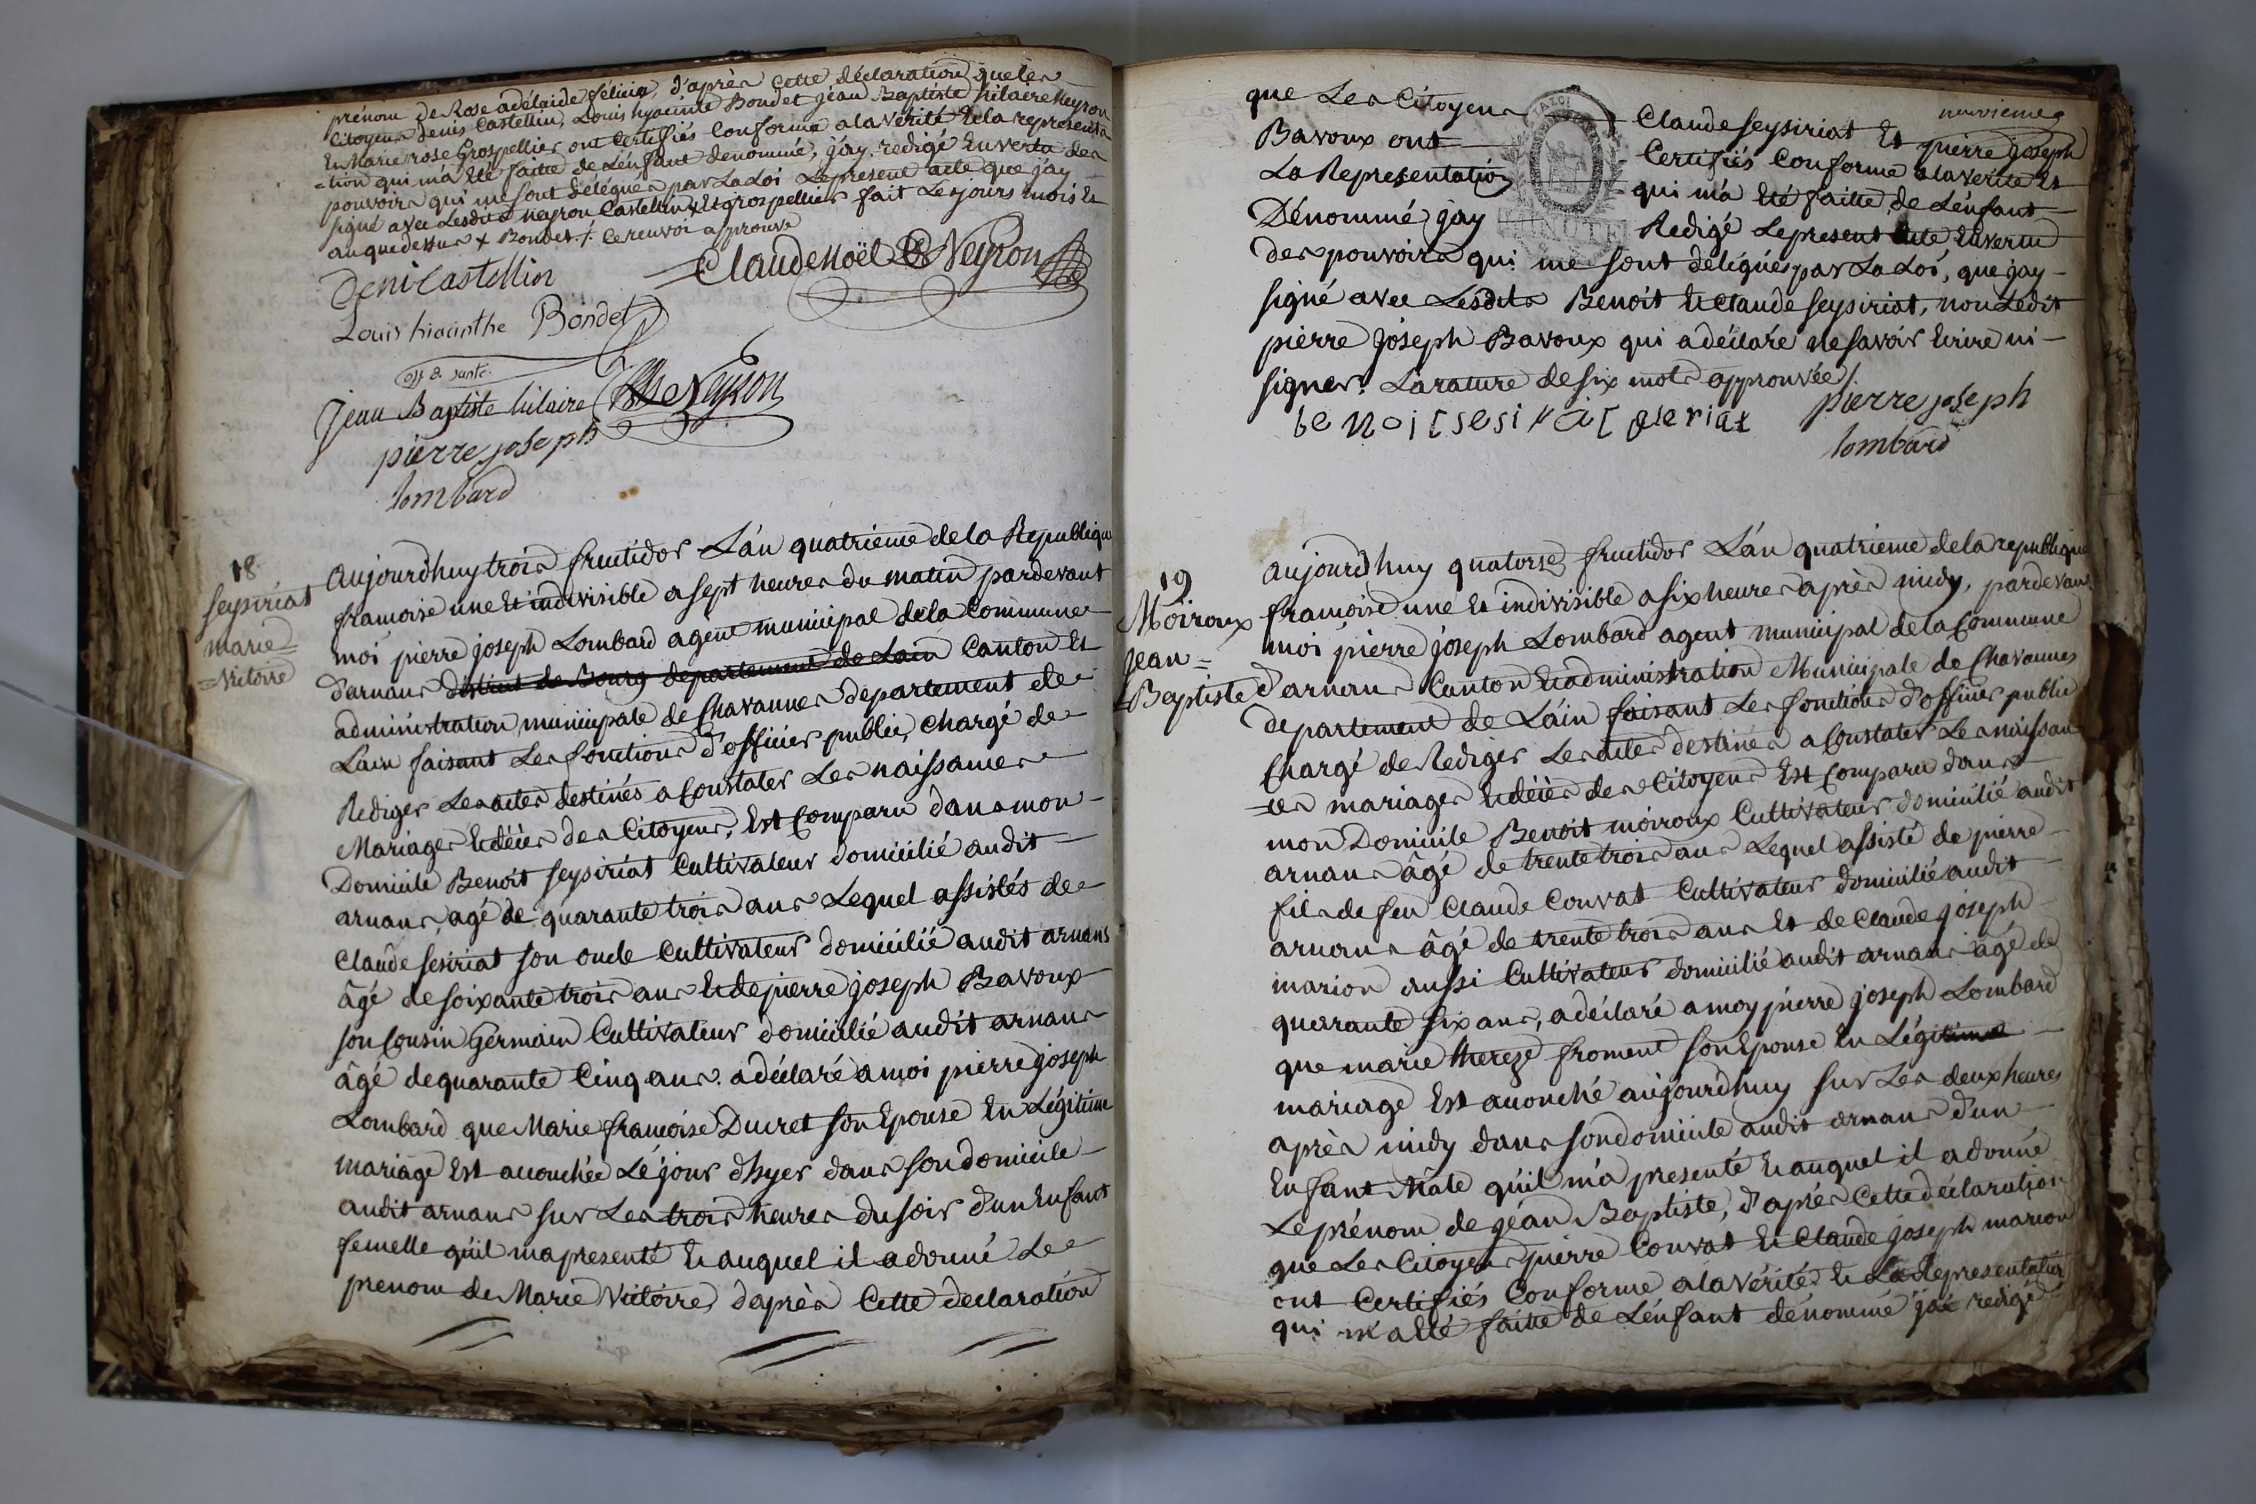 prénom de Rose adélaide félicia, d'après Cette déclaration que les
Citoyens denis Castellin, Louis hyacinte Bondet jéan Baptiste hilaire Neyron
Et Marie rose Grospellier ont Certifiés Conforme a la Vérité Et la represanta
=tion qui m'a Eté faitte de L'énfant denommé, j'ay redigé En vertu des
pouvoirs qui me sont délégués par La Loi Le present acte que j'ay
signé avec Lesdits neyron Castellin x Et grospellier fait Les jours mois Et
an que dessus x Bondet ./. Ce renvoi approuvé
Deni Castellin
Claude Noël Neyron
Louis hiacinthe Bondet
off. d. santé.
Jean Baptiste hilaire Neyron
pierre joseph
lombard
18
Seysiriat
marie =
= Victoire
aujourd'huy trois fructidor L'án quatrieme de la Republique
francoise une Et indivisible a sept heures du matin pardevant
moi pierre joseph Lombard agent municipal de la Commune
d'arnans district de Bourg departement de Lain Canton Et
administration municipale de Chavannes departement de
Lain faisant Les fonctions d'officier public, chargé de
Rediger Les actes destinés a Constater Les naissances
Mariages Et décès des Citoyens, Est Comparu dans mon
Domicile Benoit seysiriat Cultivateur domicilié audit
arnans, agé de quarante trois ans Lequel assistés de
Claude sesiriat son oncle Cultivateur domicilié audit arnans
âgé de soixante trois ans Et de pierre joseph Bavoux
son Cousin Germain Cultivateur domicilié audit arnans
âgé de quarante Cinq ans. a déclaré a moi pierre joseph
Lombard que Marie francoise Ducret son Epouse En Légitime
mariage Est accouchée Lé jour d'hyer dans son domicile
audit arnans sur Les trois heures du soir d'un Enfant
femelle qu'il ma presenté Et auquel il a donné Le
prenom de Marie Victoire, d'après Cette declaration
neuvieme
que Les Citoyens Claude seysiriat Et pierre joseph
Bavoux ont Certifiés Conforme a la verité Et
La Representation qui m'a Eté faitte, de L'énfant
Dénommé j'ay Redigé Le present acte En vertu
des pouvoirs qui me sont délégués par La Loi, que j'ay
signé avec Lesdits Benoit Et Claude seysiriat, non Ledit
pierre joseph Bavoux qui a déclaré ne savoir Ecrire ni
signer. La rature de six mots approuvée
be Noit sesiriat
pierre joseph
lombard
19
Moiroux
Jean =
= Baptiste
aujourd'huy quatorse fructidor L'án quatrieme de la republique
francoise une Et indivisible a six heures après midy, pardevant
moi pierre joseph Lombard agent municipal de la Commune
d'arnans Canton Et administration Municipale de Chavannes
departement de L'áin faisant Les fonctions d'officier public
Chargé de Rediger Les actes destinés a Constater Les naissan
=ces mariages Et décès des Citoyens Est Comparu dans
mon Domicile Benoit moiroux Cultivateur domicilié audit
arnans âgé de trente trois ans Lequel assisté de pierre
fils de feu Claude Convat Cultivateur domicilié audit
arnans âgé de trente trois ans Et de Claude joseph
marion aussi Cultivateur domicilié audit arnans âgé de
quarante six ans, a déclaré a moy pierre joseph Lombard
que marie thereze froment son Epouse En Légitime
mariage Est accouché aujourd'huy sur Les deux heures
après midy dans son domicile audit arnans d'un
Enfant Mâle qu'il m'a presenté Et auquel il a donné
Le prénom de jéan Baptiste, d'après Cette déclaration
que Les Citoyens pierre Convat Et Claude joseph marion
ont Certifiés Conforme a la Vérité Et La Representation
qui m'a Eté faitte de L'énfant dénommé j'ai redigé